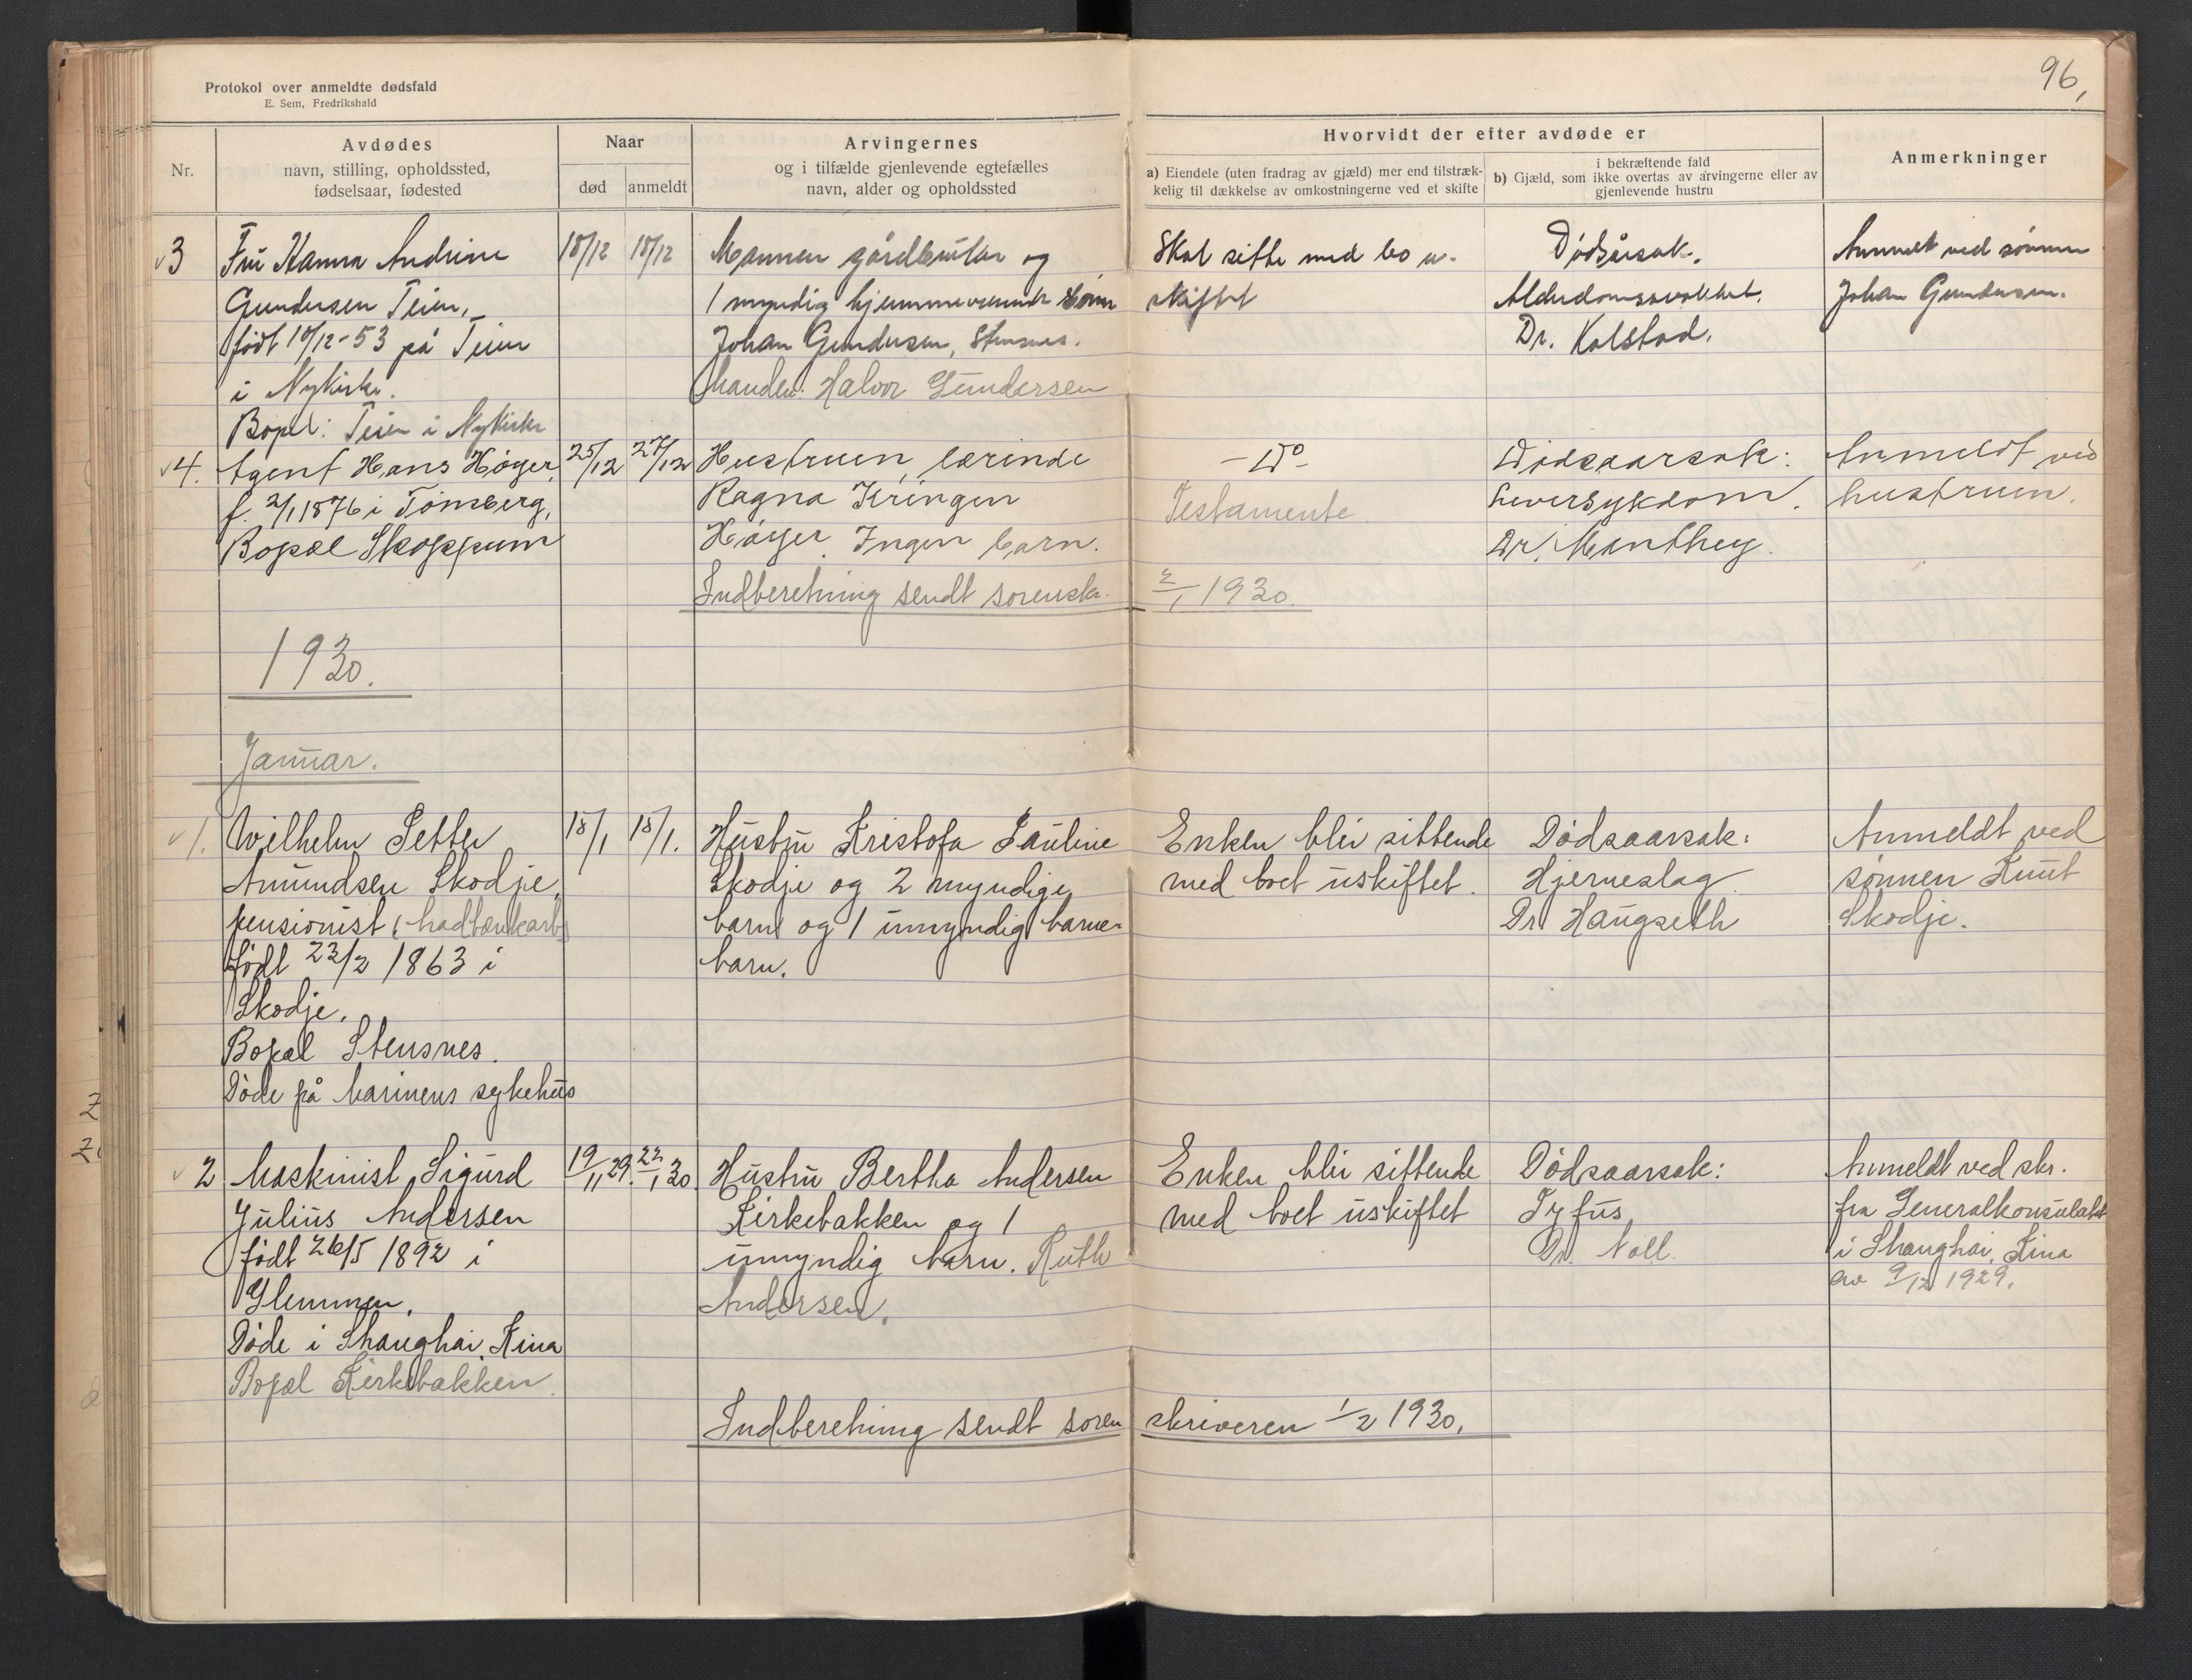 96,
Protokol over anmeldte dødsfald
E. Sem, Fredrikshald
Nr.
Avdødes
navn, stilling, opholdssted,
fødselsaar, fødested
Naar
død
anmeldt
Arvingernes
og i tilfælde gjenlevende egtefælles
navn, alder og opholdssted
Hvorvidt der efter avdøde er
a) Eiendele (uten fradrag av gjæld) mer end tilstræk-
kelig til dækkelse av omkostningerne ved et skifte
i bekræftende fald
b) Gjæld, som ikke overtas av arvingerne eller av
gjenlevende hustru
Anmerkninger
3
Fru Hanna Andrine
Gundersen Teien,
født 10/12-53 på Teien
i Nykirke.
Bopæl: Teien i Nykirke
18/12
18/12
Mannen gårdbruker og
1 myndig hjemmeværende sønn
Johan Gundersen, Stensnes.
Manden: Halvor Gundersen
Skal sitte med bo u-
skiftet
Dødsårsak.
Alderdomssvakhet.
Dr. Kolstad.
Anmeldt ved sønnen
Johan Gundersen.
4.
Agent Hans Høyer,
f. 2/1 1876 i Tønsberg,
Bopæl Skoppum
25/12
27/12
Hustruen, lærinde
Ragna Kringen
Høyer. Ingen barn.
- Do -
Testamente.
Dødsaarsak:
Leversykdom.
Dr. Manthey.
Anmeldt ved
hustruen.
Indberetning sendt sorenskr. 2/1 1930.
1930.
Januar.
1.
Wilhelm Petter
Amundsen Skodje,
pensionist,
født 23/2 1863 i
Skodje.
Bopæl Stensnes.
Døde på Marinens sykehus
18/1
18/1.
Hustru Kristofa Pauline
Skodje og 2 myndige
barn og 1 umyndig barne-
barn.
Enken blir sittende
med boet uskiftet.
Dødsaarsak:
Hjerneslag
Dr. Haugseth
Anmeldt ved
sønnen Knut
Skodje.
2
Maskinist Sigurd
Julius Andersen
født 26/5 1892 i
Glemmen.
Døde i Shanghai, Kina
Bopæl Kirkebakken.
19/11 29.
22/1 30.
Hustru Bertha Andersen
Kirkebakken og 1
umyndig barn. Ruth
Andersen.
Enken blir sittende
med boet uskiftet
Dødsaarsak:
Tyfus
Dr. Noll.
Anmeldt ved skr.
fra Generalkonsulatet
i Shanghai, Kina
av 9/12 1929.
Indberetning sendt sorenskriveren 1/2 1930.